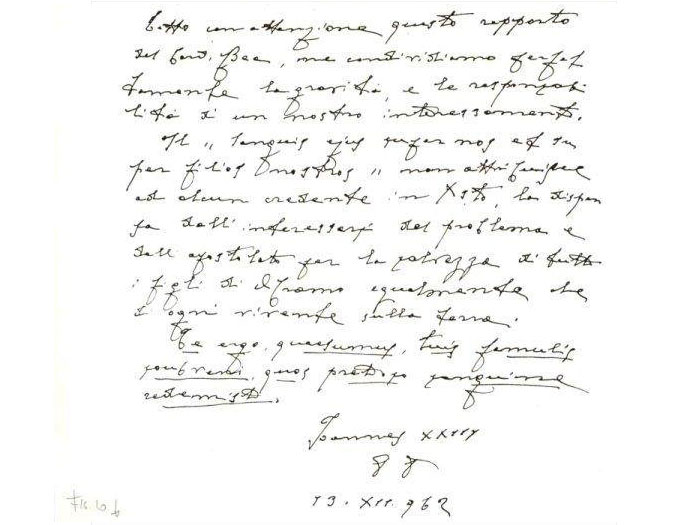 Letto con attenzione questo rapporto
del Card. Bea, ne condividiamo perfet
tamente la gravità, e la responsabi
lità di un nostro interessamento.
Il „ Sanguis ejus super nos et su
per filios nostros „ non attribuisce
ad alcun credente in Xsto, la dispen
sa dall' interessarsi del problema e
dall' apostolato per la salvezza di tutti
i figli di Abramo egualmente che
di ogni vivente sulla terra.
Te ergo, quaesumus, tuis famulis
subveni, quos pretioso sanguine
redemisti.
Joannes XXIII
13. XII. 962